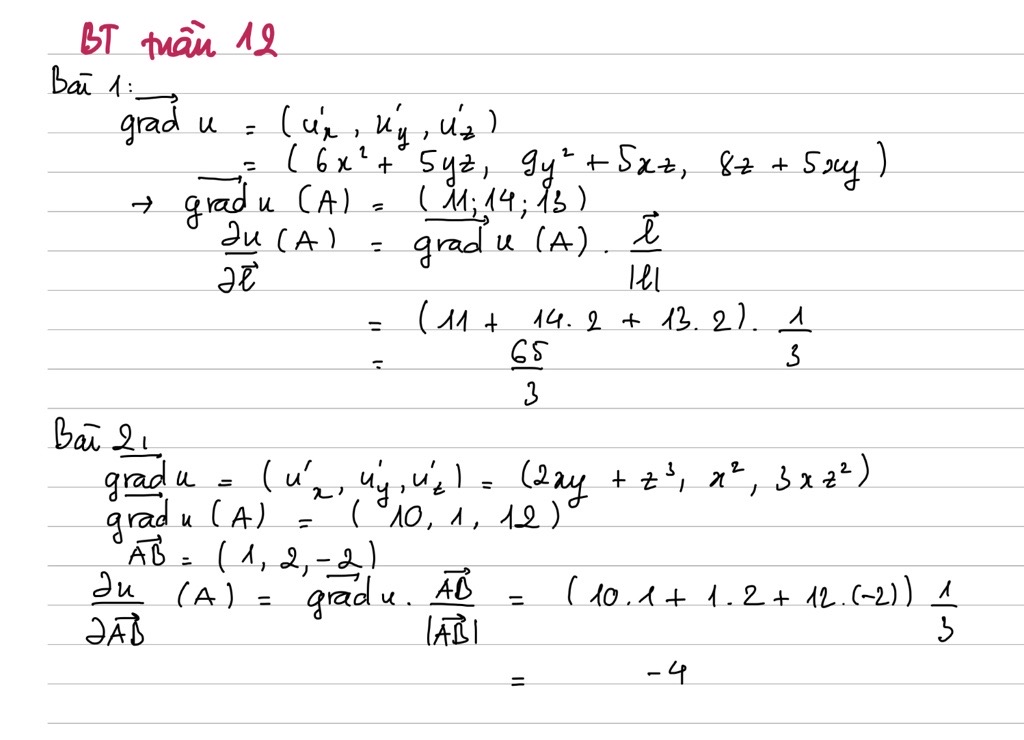 BT tuần 12
Bài 1:
$\overrightarrow{grad}$ u = (u'x, u'y, u'z)
= (6x² + 5yz, 9y² + 5xz, 8z + 5xy)
→ $\overrightarrow{grad}$ u (A) = (11; 14; 13)
$\frac{\partial u}{\partial \vec{l}}$ (A) = $\overrightarrow{grad}$ u (A) . $\frac{\vec{l}}{|l|}$
= (11 + 14. 2 + 13. 2). $\frac{1}{3}$
= $\frac{65}{3}$
Bài 2:
$\overrightarrow{grad}$ u = (u'x, u'y, u'z) = (2xy + z³, x², 3xz²)
$\overrightarrow{grad}$ u (A) = (10, 1, 12)
$\overrightarrow{AB}$ = (1, 2, -2)
$\frac{\partial u}{\partial \overrightarrow{AB}}$ (A) = $\overrightarrow{grad}$ u. $\frac{\overrightarrow{AB}}{|\overrightarrow{AB}|}$ = (10.1 + 1.2 + 12.(-2)) $\frac{1}{3}$
= -4